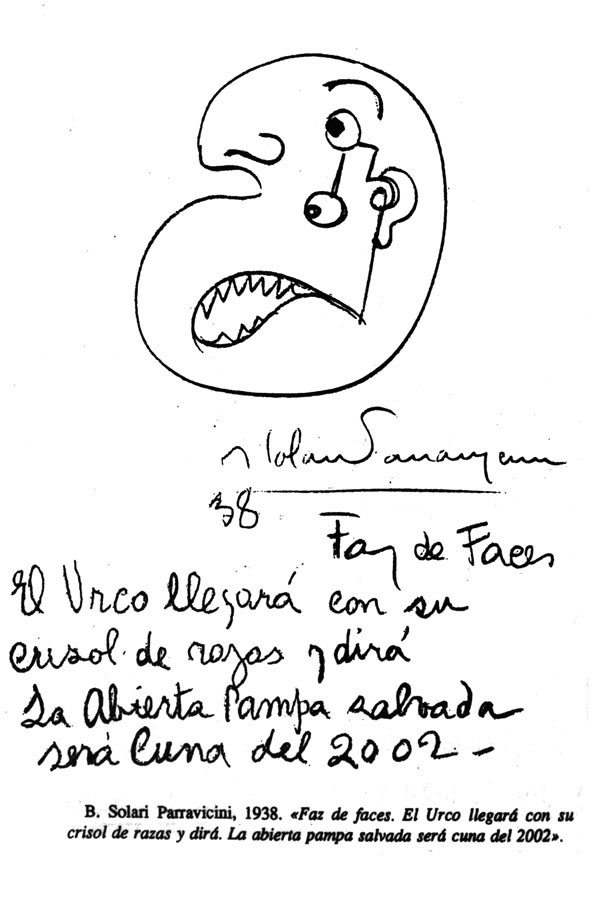 Solari Parravicini
38
Faz de Faces
El Urco llegará con su
crisol de razas y dirá
La Abierta Pampa salvada
será Cuna del 2002 -
B. Solari Parravicini, 1938. «Faz de faces. El Urco llegará con su
crisol de razas y dirá. La abierta pampa salvada será cuna del 2002».